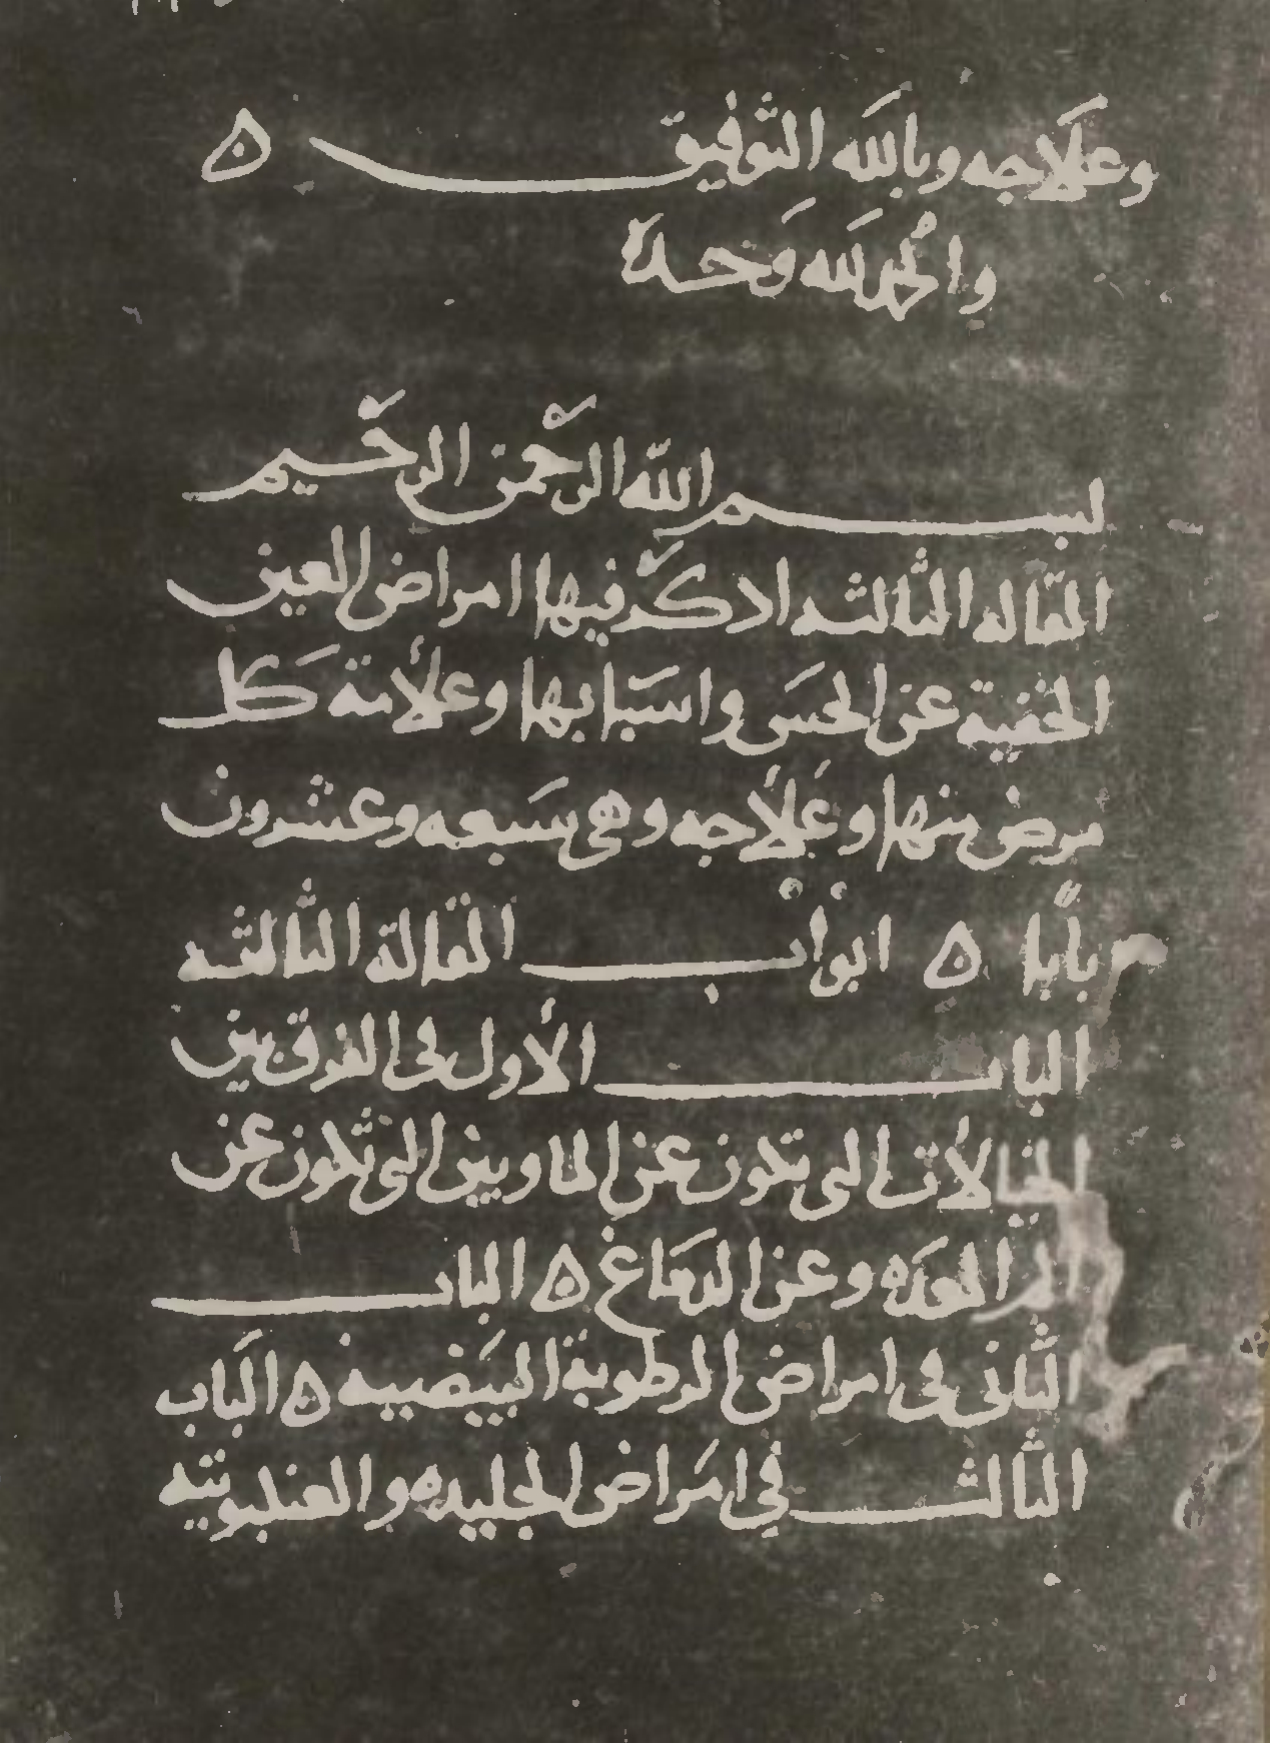 وعلاجه وبالله التوفيق ه
والحمد لله وحده
بسم الله الرحمن الرحيم
المقاله الثالثه اذكر فيها امراض العين
الخفية عن الحس واسبابها وعلامة كل
مرض منها وعلاجه وهى سبعه وعشرون
بابا ه ابواب المقالة الثالثه
الباب الأول فى الفرق بين
الخيالات التى تكون عن الما وبين التى تكون عن
المعده وعن الدماغ ه الباب
الثانى فى امراض الرطوبة البيضيه ه الباب
الثالث فى امراض الجليديه والعنكبوتيه